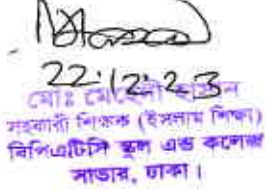 22.12.23
মোঃ মেহেদী হাসান
সহকারী শিক্ষক (ইসলাম শিক্ষা)
বিপিএটিসি স্কুল এন্ড কলেজ
সাভার, ঢাকা।